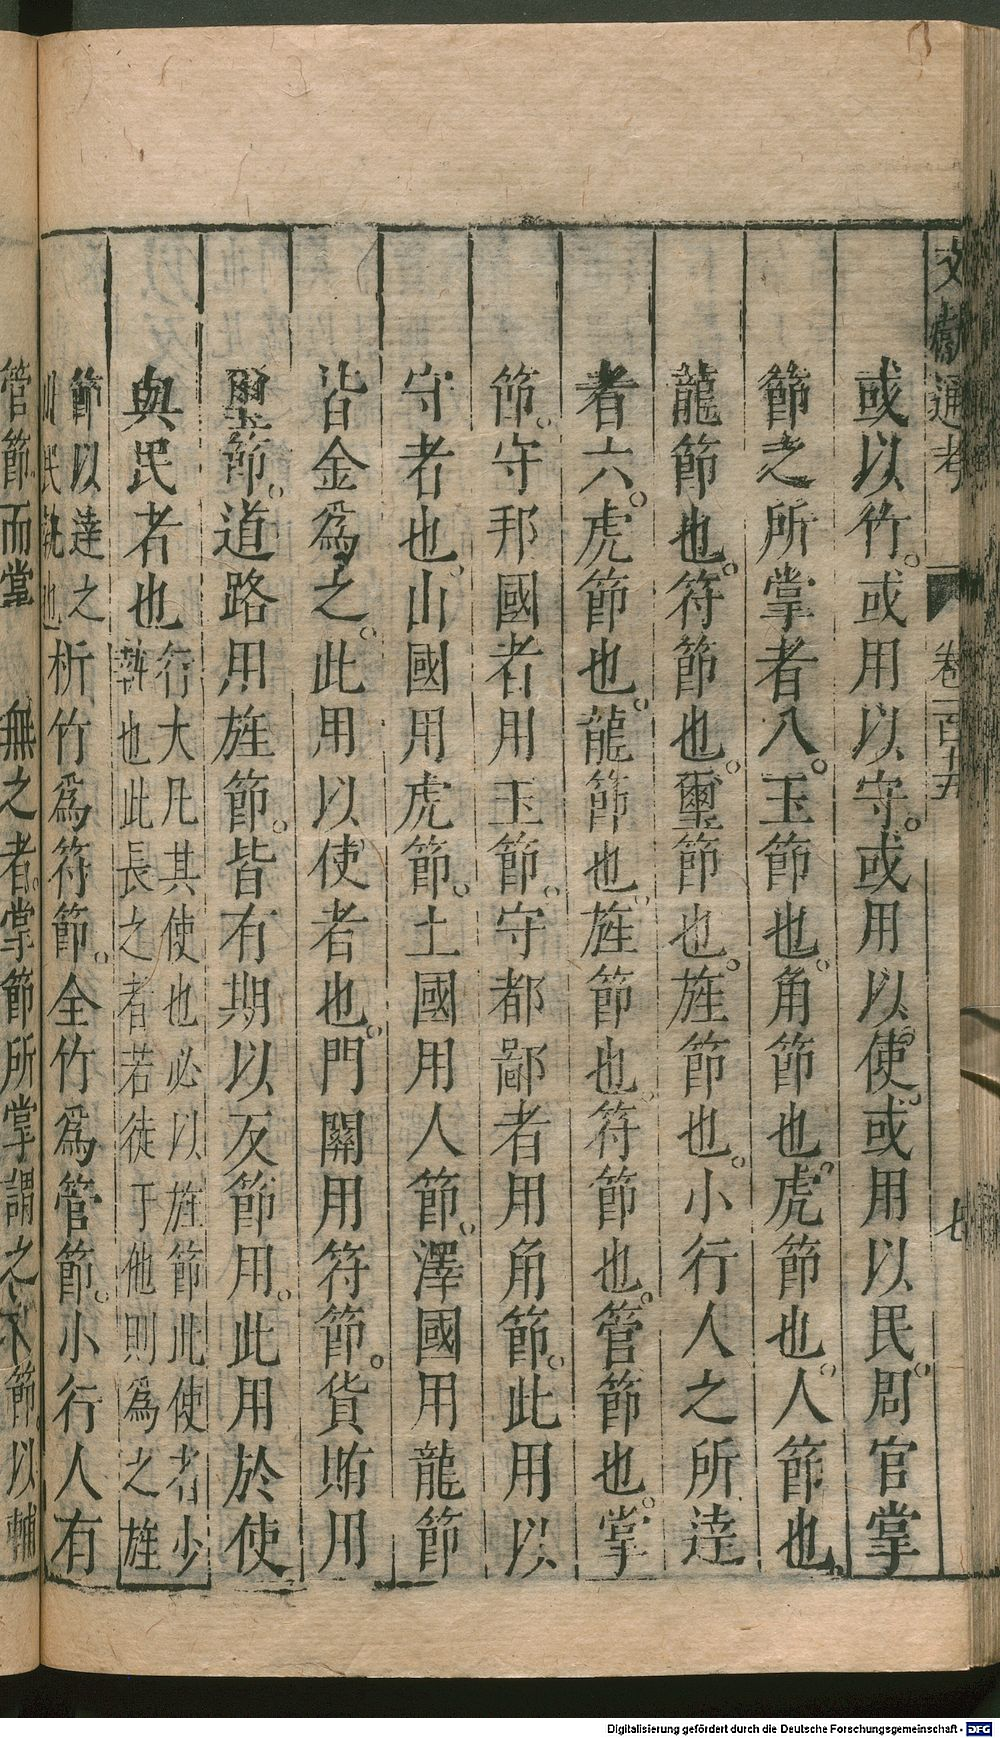 文獻通考 卷一百十五 七
或以竹。或用以守。或用以使。或用以民。周官掌
節之所掌者八。玉節也。角節也。虎節也。人節也。
龍節也。符節也。璽節也。旌節也。小行人之所達
者六。虎節也。龍節也。旌節也。符節也。管節也。掌
節。守邦國者用玉節。守都鄙者用角節。此用以
守者也。山國用虎節。土國用人節。澤國用龍節
皆金爲之。此用以使者也。門關用符節。貨賄用
璽節。道路用旌節。皆有期以反節用。此用於使
與民者也
行大凡其使也必以旌節此使者少
執也此長之者若徒于他則爲之旌
節以達之
此民執也
析竹爲符節。全竹爲管節。小行人有
管節而掌 無之者。掌節所掌謂之 節以輔
Digitalisierung gefördert durch die Deutsche Forschungsgemeinschaft - DFG